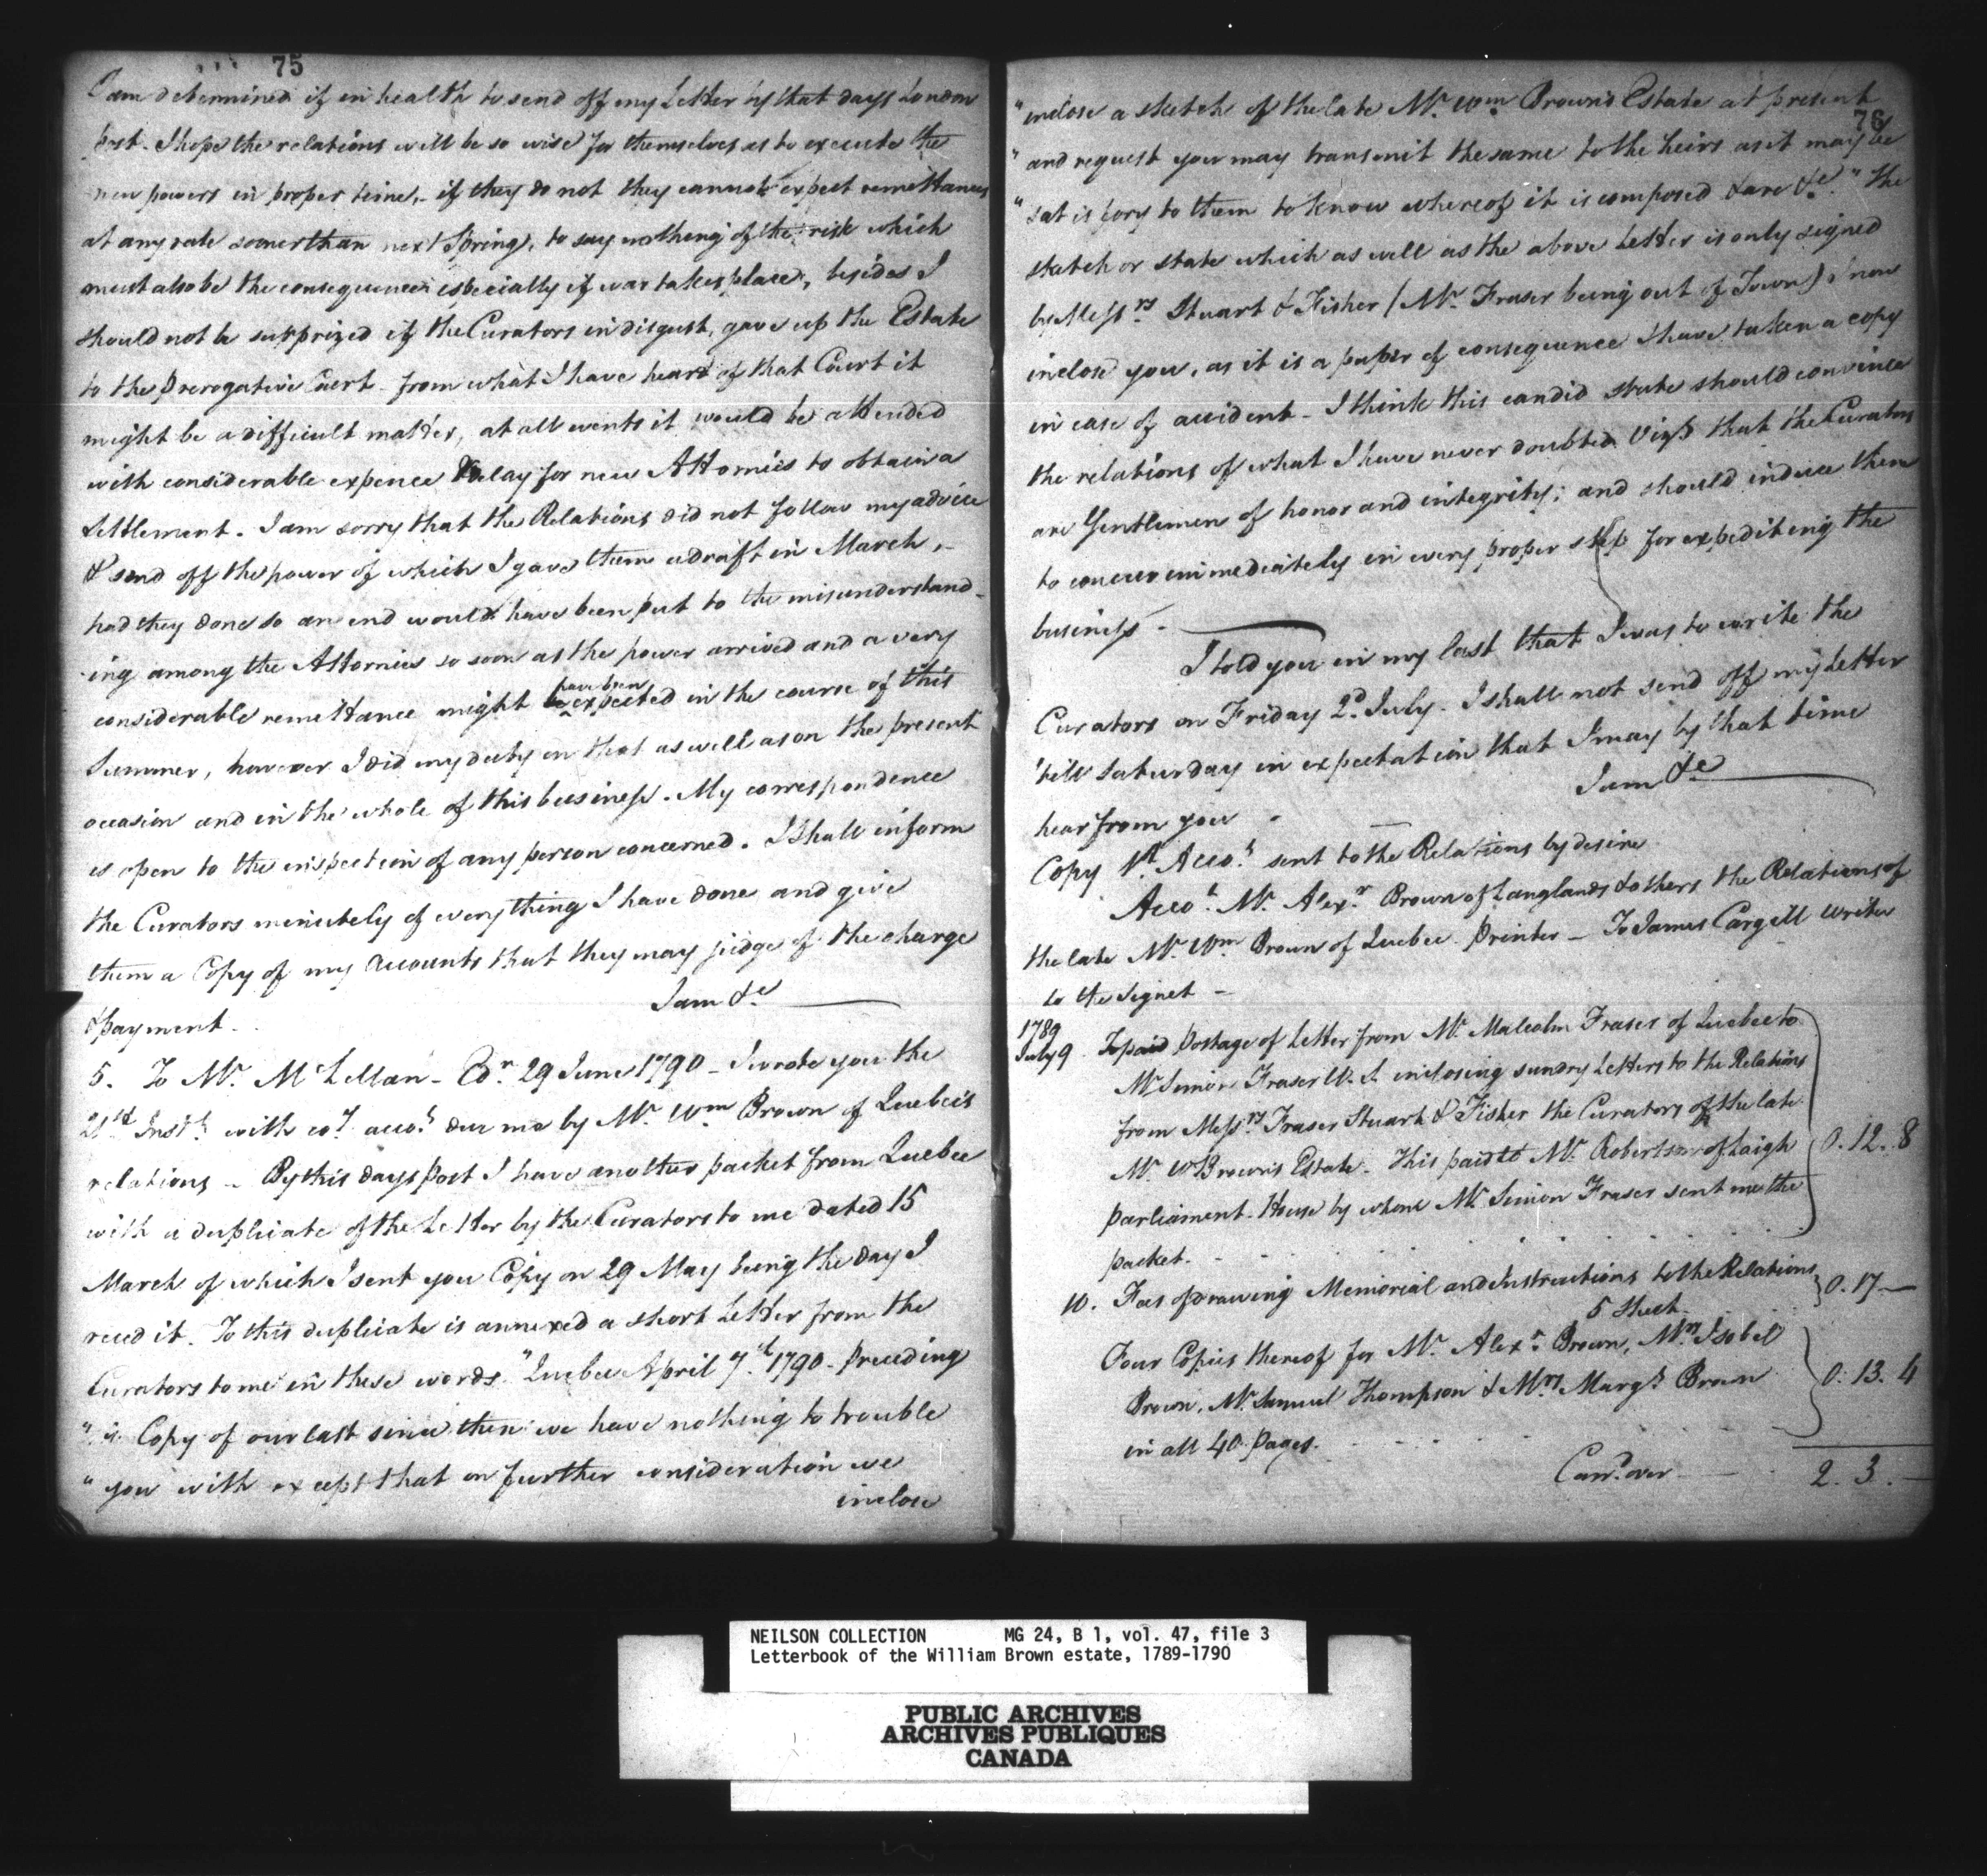 75
I am determined if in health to send off my Letter by that days London
post. I hope the relations will be so wise for themselves as to execute the
new powers in proper time, - if they do not they cannot expect remittances
at any rate sooner than next Spring, to say nothing of the risk which
must also be the consequence especially if war takes place, besides I
should not be surprized if the Curators in disgust, gave up the Estate
to the Prerogative Court - from what I have heard of that Court it
might be a difficult matter, at all events it would be attended
with considerable expence & delay for new Attornies to obtain a
Settlement. I am sorry that the Relations did not follow my advice
& send off the power of which I gave them a draft in March, -
had they done so an end would have been put to the misunderstand-
-ing among the Attornies so soon as the power arrived and a very
considerable remittance might have been expected in the course of this
Summer, however I did my duty on that as well as on the present
occasion and in the whole of this business. My correspondence
is open to the inspection of any person concerned. I shall inform
the Curators minutely of every thing I have done and give
them a Copy of my Accounts that they may judge of the charge
& payment -
I am &c
5. To Mr. McLellan - Edr. 29 June 1790 - I wrote you the
21st Instt. with coy. accot. due me by Mr. Wm Brown of Quebec's
relations - By this days post I have another packet from Quebec
with a duplicate of the Letter by the Curators to me dated 15
March of which I sent you Copy on 29 May being the day I
recd it. To this duplicate is annexed a short Letter from the
Curators to me in these words. "Quebec April 7.th 1790 - Preceding
" is Copy of our last since then we have nothing to trouble
" you with except that on further consideration we
inclose
76
" inclose a sketch of the late Mr. Wm Brown's Estate at present
" and request you may transmit the same to the heirs as it may be
" satisfory to them to know whereof it is composed & are &c." The
sketch or state which as well as the above Letter is only signed
by Messrs. Stuart & Fisher (Mr. Fraser being out of Town) I now
inclose you, as it is a paper of consequence I have taken a copy
in case of accident - I think this candid state should convince
the relations of what I have never doubted Vizt that the Curators
are Gentlemen of honor and integrity; and should induce them
to concur immediately in every proper step for expediting the
business -
I told you in my last that I was to write the
Curators on Friday 2d. July. I shall not send off my Letter
'till Saturday in expectation that I may by that time
hear from you -
I am &c
Copy Accot. sent to the Relations by desire
Accot. Mr. Alexr. Brown of Langlands & others the Relations of
the late Mr. Wm Brown of Quebec Printer - To James Cargill Writer
to the Signet -
1789
July 9 To paid Postage of Letter from Mr. Malcolm Fraser of Quebec to
Mr Simon Fraser W. S. inclosing sundry Letters to the Relations
from Messrs. Fraser Stuart & Fisher the Curators of the late
Mr. W Brown's Estate - This paid to Mr. Robertson of Laigh 0. 12. 8
Parliament House by whom Mr. Simon Fraser sent me the
packet. -
10. Fees of drawing Memorial and Instructions to the Relations
5 Sheet. 0. 17 -
Four Copies thereof for Mr. Alexr. Brown, Mrs Isobel
Brown, Mr. Samuel Thompson & Mrs Margt. Brown 0. 13. 4
in all 40 Pages.
Carrd. over 2. 3. -
NEILSON COLLECTION MG 24, B 1, vol. 47, file 3
Letterbook of the William Brown estate, 1789-1790
PUBLIC ARCHIVES
ARCHIVES PUBLIQUES
CANADA